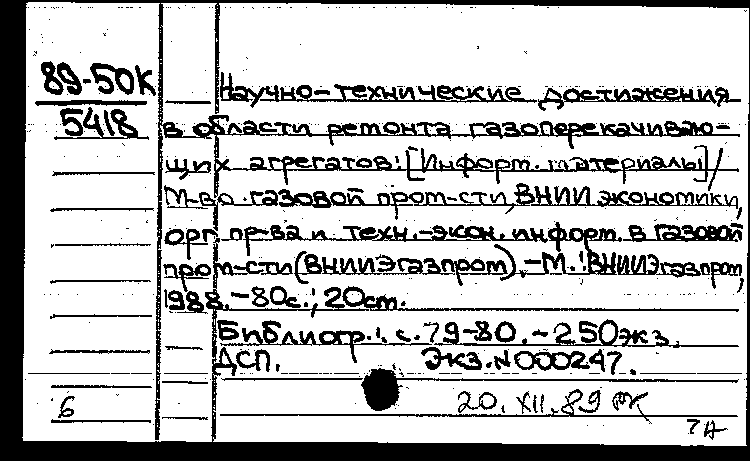 89-50К
5418
Научно-технические достижения
в области ремонта газоперекачиваю-
щих агрегатов: [Информ. материалы] /
М-во газовой пром-сти, ВНИИ экономики,
орг. пр-ва и техн.-экон. информ. в газовой
пром-сти (ВНИИЭгазпром). -М.: ВНИИЭгазпром,
1988. -80с.; 20см.
Библиогр.: с.79-80. -250экз.
ДСП. Экз.N000247.
6
20.XII.89